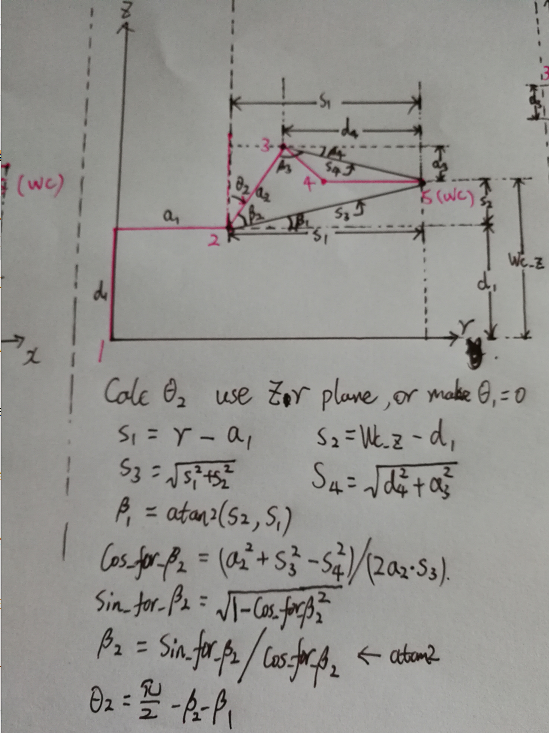 z
S₁
d₄
3
β₄
β₃
S₄
a₃
θ₂
a₂
4
5(WC)
(WC)
S₂
β₂
S₃
a₁
2
β₁
S₁
Wc_Z
d₁
d₁
1
r
x
Calc θ₂ use Z r plane, or make θ₁=0
S₁ = r - a₁ S₂ = Wc_Z - d₁
S₃ = √(S₁²+S₂²) S₄ = √(d₄²+a₃²)
β₁ = atan2(S₂, S₁)
Cos_for_β₂ = (a₂²+S₃²-S₄²)/(2a₂·S₃).
Sin_for_β₂ = √(1-Cos_for_β₂²)
β₂ = Sin_for_β₂/Cos_for_β₂ ← atan2
θ₂ = π/2 - β₂ - β₁